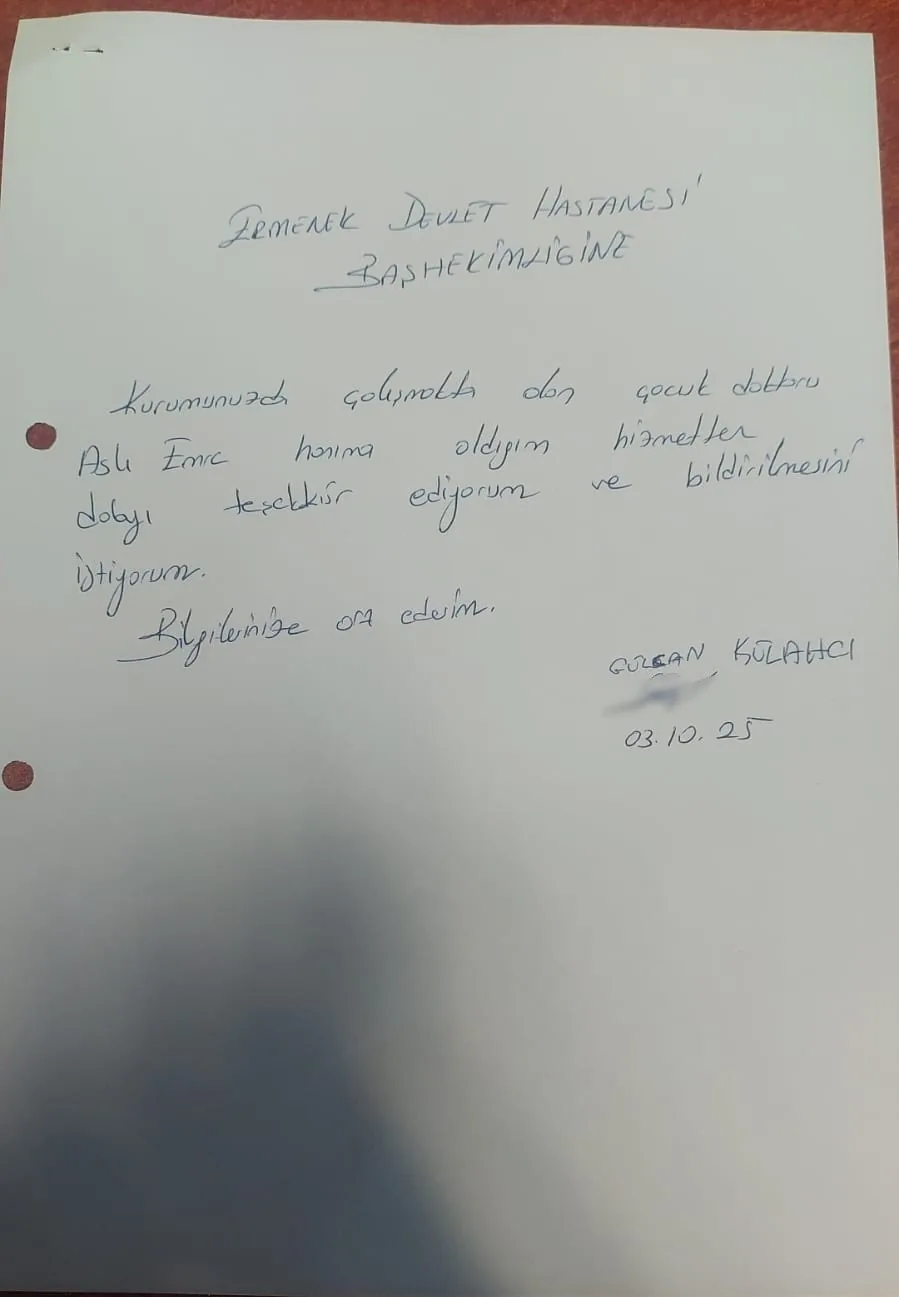 ERMENEK DEVLET HASTANESİ
BAŞHEKİMLİĞİNE
Kurumunuzda çalışmakta olan çocuk doktoru
Aslı Emre hanıma aldığım hizmetten
dolayı teşekkür ediyorum ve bildirilmesini
istiyorum.
Bilgilerinize arz ederim.
GÜLCAN KÜLAHCI
03.10.25